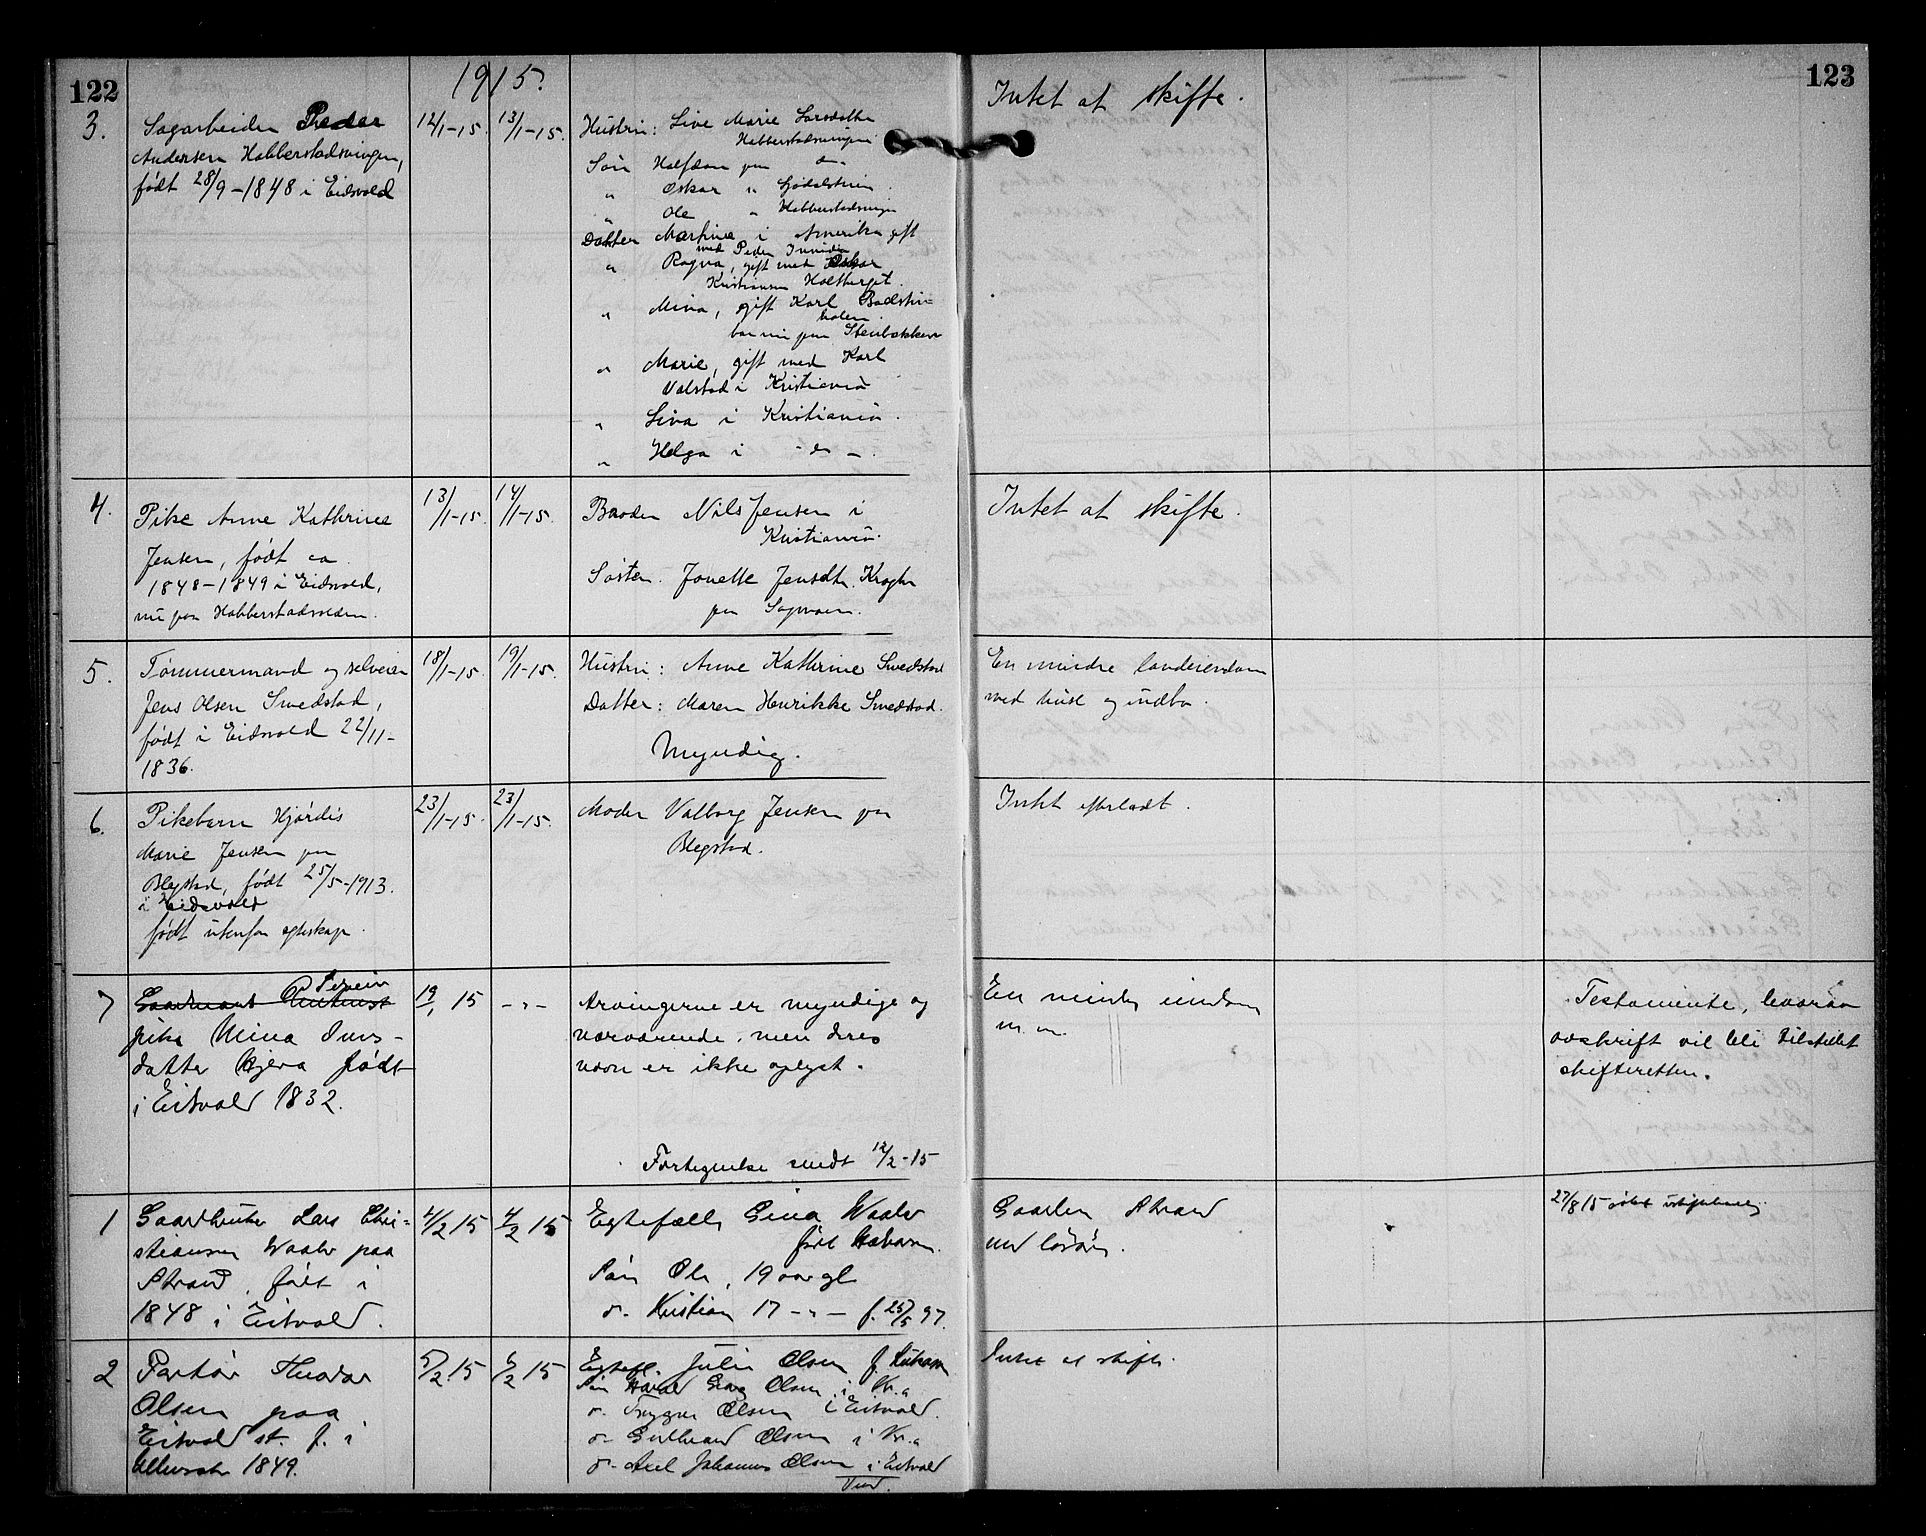 122
1915.
123
3.
Sagarbeider Peder
Andersen Habberstadsvingen,
født 28/9-1848 i Eidsvold
12/1-15.
13/1-15.
Hustru: Live Marie Larsdatter
Habberstadsvingen
Søn Halfdan paa do-
" Oskar "
" Ole " Habberstadsvingen
Datter Martine i Amerika gift
med Peder
" Ragna, gift med Oskar
Kristiansen Holtberget.
" Mina, gift Karl Badstu-
holen.
bor nu paa Stenbækken
" Marie, gift med Karl
Valstad i Kristiania
" Lina i Kristiania.
" Helga i -do-.
Intet at skifte.
4.
Pike Anne Kathrine
Jensen, født ca.
1848-1849 i Eidsvold,
nu paa Habberstadsveden.
13/1-15.
14/1-15.
Broder Nils Jensen i
Kristiania.
Søster. Jonette Jensdtr. Krogh
paa Sagmoen.
Intet at skifte.
5.
Tømmermand og selveier
Jens Olsen Smedstad,
født i Eidsvold 22/11-
1836.
18/1-15.
19/1-15.
Hustru: Anne Kathrine Smedstad
Datter: Maren Henrikke Smedstad.
Myndig.
En mindre landeiendom
med huse og indbo.
6.
Pikebarn Hjørdis
Marie Jensen paa
Blegstad, født 25/5-1913.
i Eidsvold
født utenfor egteskap.
23/1-15.
23/1-15.
Moder Valborg Jensen paa
Blegstad.
Intet efterladt.
7
Gaardmand
pike Mina Jens-
datter Bjera født
i Eidsvold 1832.
19/1 15
-"-
Arvingerne er myndige og
nærværende, men deres
navn er ikke oplyst.
Fortegnelse sendt 12/2-15
En mindre eiendom
m.m.
Testamente, hvorav
avskrift vil bli tilstillet
skifteretten.
1
Gaardbruker Lars Chri-
stiansen Waaler paa
Strand, født i
1848 i Eidsvold.
4/2 15
4/2 15
Egtefælle Gina Waaler
født
Søn Ole, 19 aar gl
do- Kristian 17 -"- f. 25/5 97.
Gaarden Strand
med løsøre.
27/8 15
2
Portør Theodor
Olsen paa
Eidsvold st. f. i
Ullensaker 1849.
5/2 15
6/2 15
Egtef. Julie Olsen f.
Søn Harald Georg Olsen i Kr.a
do- Trygve Olsen i Eidsvold.
do- Gulbrand Olsen i Kr.a
do- Axel Johannes Olsen i Eidsvold
Vend.
Intet at skifte.